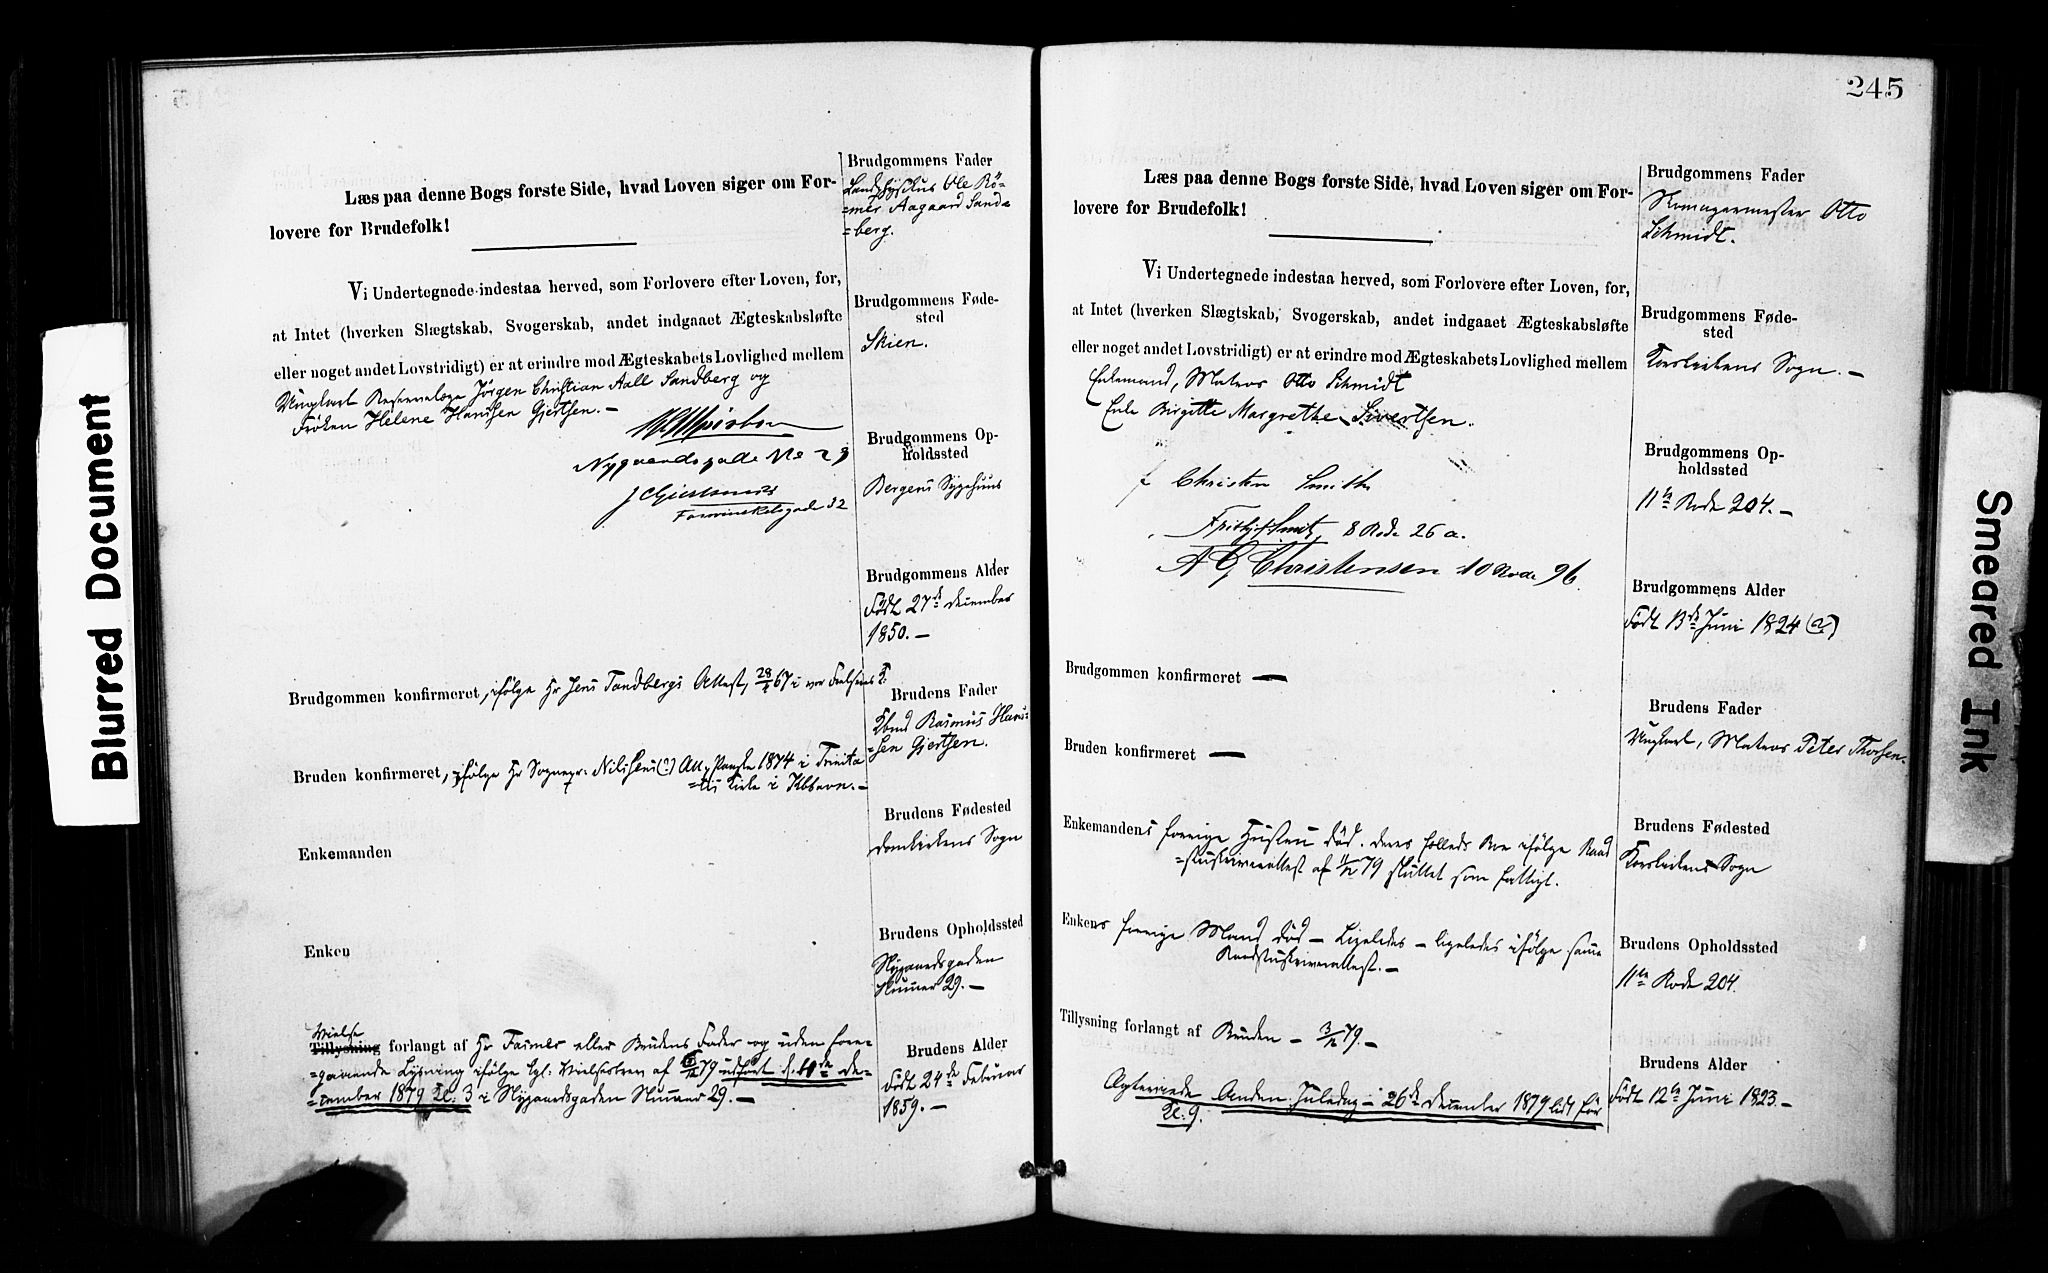 Blurred Document
Læs paa denne Bogs forste Side, hvad Loven siger om For-
lovere for Brudefolk!
Vi Undertegnede indestaa herved, som Forlovere efter Loven, for,
at Intet (hverken Slægtskab, Svogerskab, andet indgaaet Ægteskabsløfte
eller noget andet Lovstridigt) er at erindre mod Ægteskabets Lovlighed mellem
Ungkarl Reservelæge Jørgen Christian Aall Sandberg og
Frøken Helene Hansen Gjertsen. —
Nygaardsgade No 29
Brudgommen konfirmeret, ifølge Hr Jens Tandbergs Attest, 67 i
Bruden konfirmeret, ifølge Hr Sognepr: Nilssens (?) Att, Paaske 1874 i Trinita
=tis Kirke i Kbhavn. —
Enkemanden
Enken
Vielse
Tillysning forlangt af Hr eller Brudens Fader og uden fore=
=gaaende Lysning ifølge kgl: Vielsesbrev af 79 udført d. 11te De=
=cember 1879 Kl. 3 i Nygaardsgaden Numer 29. —
Brudgommens Fader
Landphysikus Ole Rö=
=mer Aagaard Sand=
=berg.
BrudgommensFøde-
sted
Skien.
Brudgommens Op-
holdssted
Bergens Sygehuus
Brudgommens Alder
Født 27de December
1850. —
Brudens Fader
Kbmd Rasmus Han=
=sen Gjertsen.
Brudens Fødested
Domkirkens Sogn
Brudens Opholdssted
Nygaardsgaden
Numer 29. —
Brudens Alder
Født 24de Februar
1859. —
245
Læs paa denne Bogs forste Side, hvad Loven siger om For-
lovere for Brudefolk!
Vi Undertegnede indestaa herved, som Forlovere efter Loven, for,
at Intet (hverken Slægtskab, Svogerskab, andet indgaaet Ægteskabsløfte
eller noget andet Lovstridigt) er at erindre mod Ægteskabets Lovlighed mellem
Enkemand, Matros Otto Schmidt
Enke Birgitte Margrethe Sivertsen.
Christen Smith
8 Rode 26 a.
A G Christensen 10 Rode 96
Brudgommen konfirmeret —
Bruden konfirmeret —
Enkemandens forrige Hustru død. Deres fælleds Boe ifølge Raad
=stuskriverattest af 79 sluttet som fattigt.
Enkens forrige Mand død — Ligeledes — ligeledes ifølge samme
Raadstuskriverattest. —
Tillysning forlangt af Bruden — 79. —
Agteviede Anden Juledag — 26de December 1879 lidt før
Kl. 9.
Brudgommens Fader
Skomagermester Otto
Schmidt.
Brudgommens Føde-
sted
Korskirkens Sogn. —
Brudgommens Op-
holdssted
11te Rode 204. —
Brudgommens Alder
Født 13de Juni 1824
Brudens Fader
Ungkarl, Matros Peter Thorsen.
Brudens Fødested
Korskirkens Sogn
Brudens Opholdssted
11te Rode 204.
Brudens Alder
Født 12te Juni 1823. —
Smeared Ink